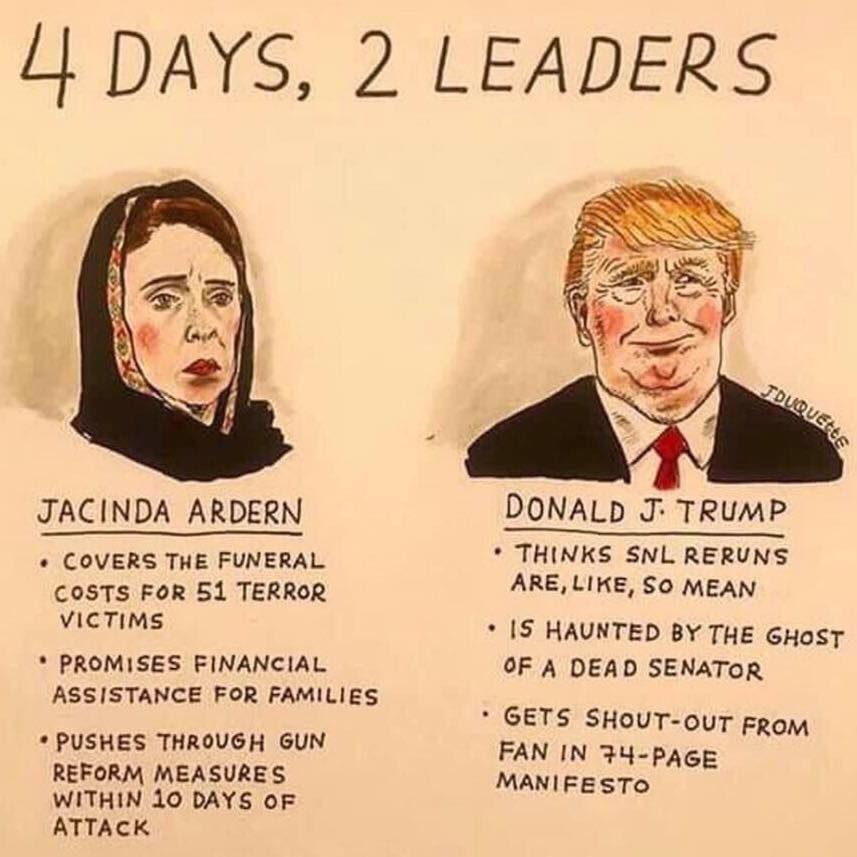 4 DAYS, 2 LEADERS
JACINDA ARDERN
• COVERS THE FUNERAL
COSTS FOR 51 TERROR
VICTIMS
• PROMISES FINANCIAL
ASSISTANCE FOR FAMILIES
• PUSHES THROUGH GUN
REFORM MEASURES
WITHIN 10 DAYS OF
ATTACK
JDUQUETTE
DONALD J. TRUMP
• THINKS SNL RERUNS
ARE, LIKE, SO MEAN
• IS HAUNTED BY THE GHOST
OF A DEAD SENATOR
• GETS SHOUT-OUT FROM
FAN IN 74-PAGE
MANIFESTO